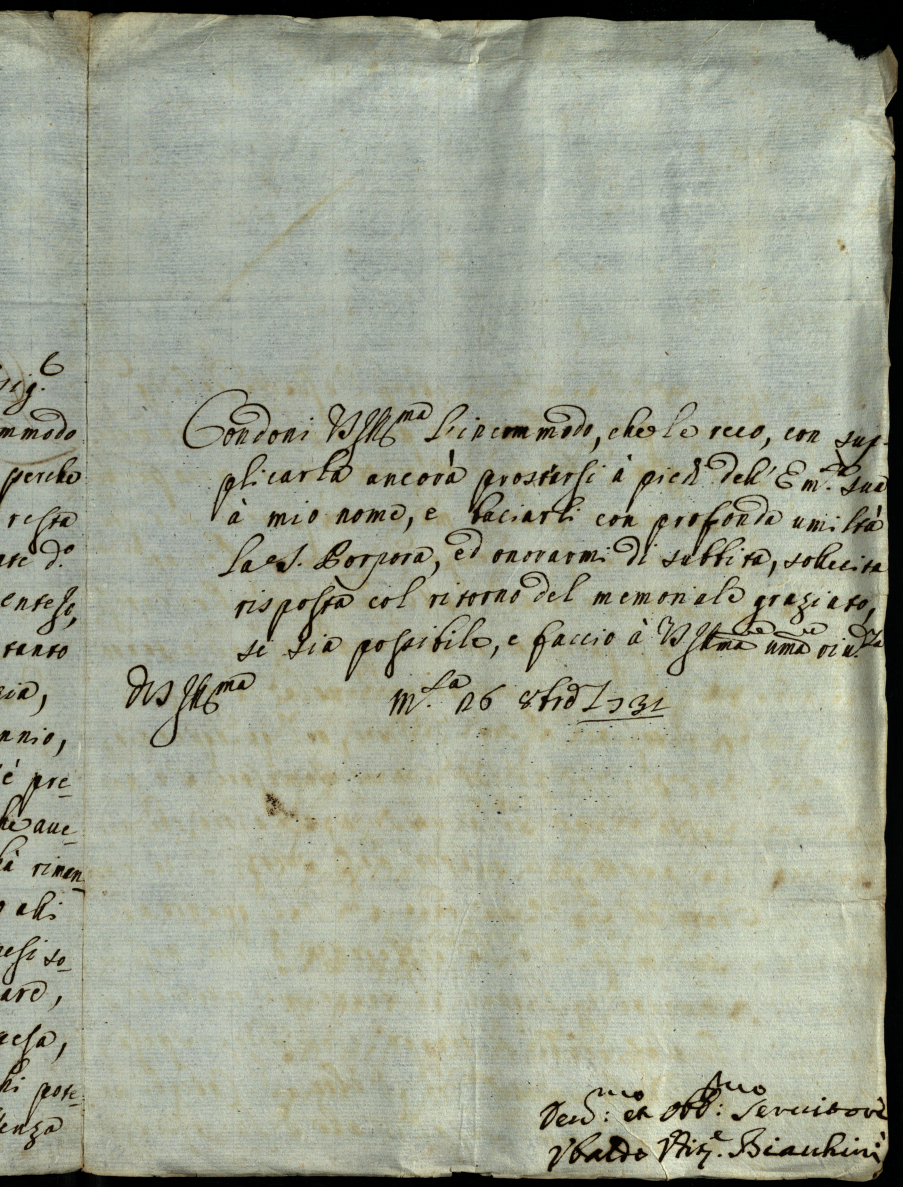 sig.
mmodo
perche
resta
ate d.o
enteso,
tanto
ia,
nnio,
è pre-
he aue-
à riman-
o alli
esi so-
are,
esa,
hi pote-
enza
Condoni VS Ill.ma l'incommodo, che le reco, con sup-
plicarla ancorà prostarsi à piedi dell' Em.a Sua
à mio nome, e baciarli con profonda umiltà
la S. Porpora, ed onorarmi di subbita, sollecita
risposta col ritorno del memoriale graziato,
se sia possibile, e faccio à VS Ill.ma
Di VS Ill.ma
M.ta 26 8bre 1731
Deu.mo et Obb.mo Seruitore
Vbaldo Bianchini